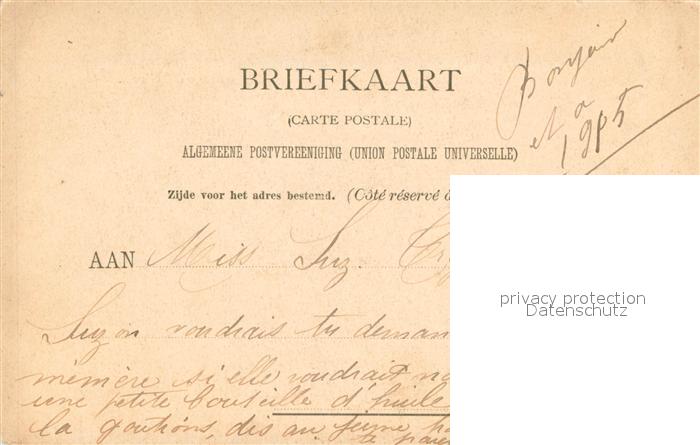 BRIEFKAART
(CARTE POSTALE)
ALGEMEENE POSTVEREENIGING (UNION POSTALE UNIVERSELLE)
Zijde voor het adres bestemd. (Côté réservé
Bonjour
et a
1905
AAN Miss Suz.
privacy protection
Datenschutz
Suzon voudrais tu deman
mémère si elle voudrait
une petite bouteille d'huile
la goutions, dis au